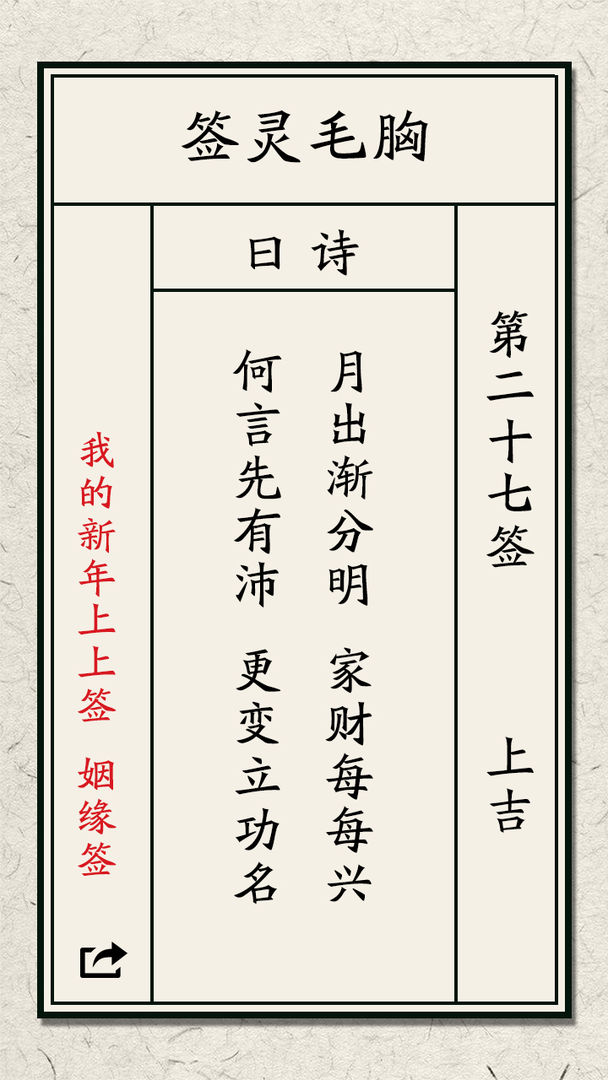 胸毛灵签
第二十七签 上吉
诗曰
月出渐分明 家财每每兴
何言先有沛 更变立功名
我的新年上上签 姻缘签